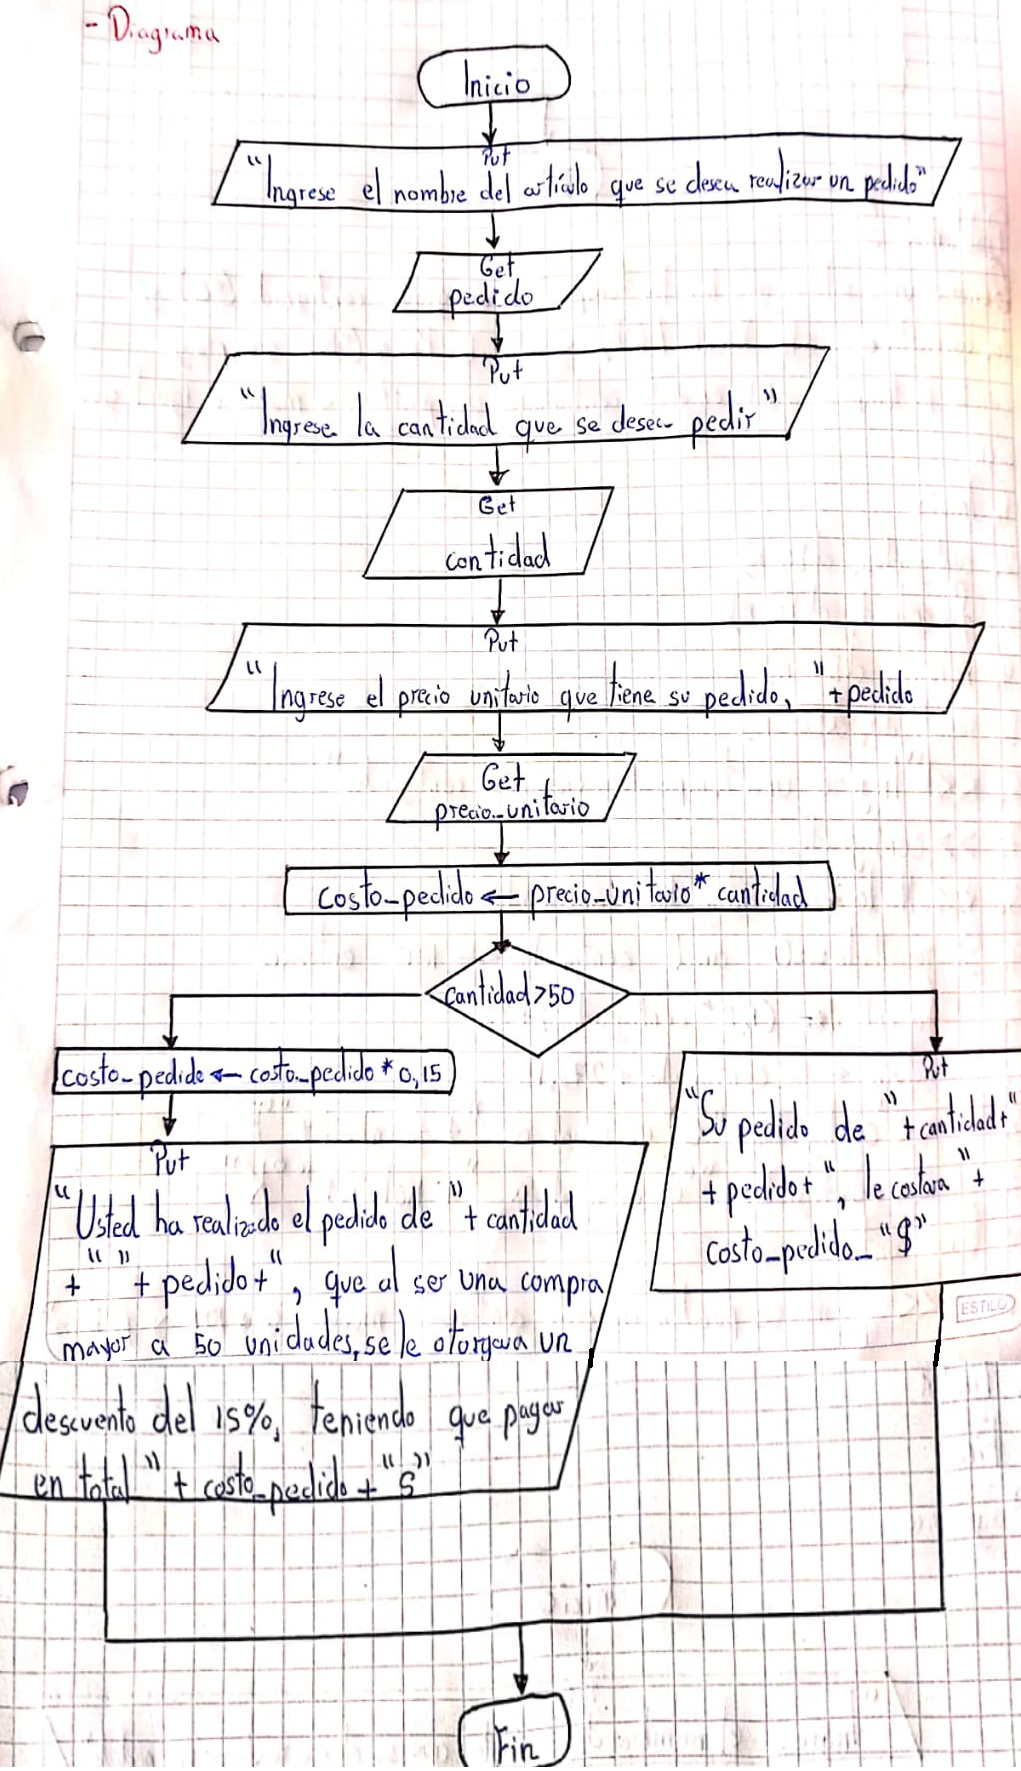 - Diagrama
Inicio
Put
"Ingrese el nombre del artículo que se desea realizar un pedido"
Get
pedido
Put
"Ingrese la cantidad que se desea pedir"
Get
cantidad
Put
"Ingrese el precio unitario que tiene su pedido, "+pedido
Get
precio_unitario
costo_pedido ← precio_unitario * cantidad
cantidad>50
costo_pedido ← costo_pedido * 0,15
Put
"Usted ha realizado el pedido de " + cantidad
+ " " + pedido + ", que al ser una compra
mayor a 50 unidades, se le otorgara un
descuento del 15%, teniendo que pagar
en total " + costo_pedido + "$"
Put
"Su pedido de " + cantidad + "
+ pedido + ", le costara " +
costo_pedido_ "$"
ESTILO
Fin